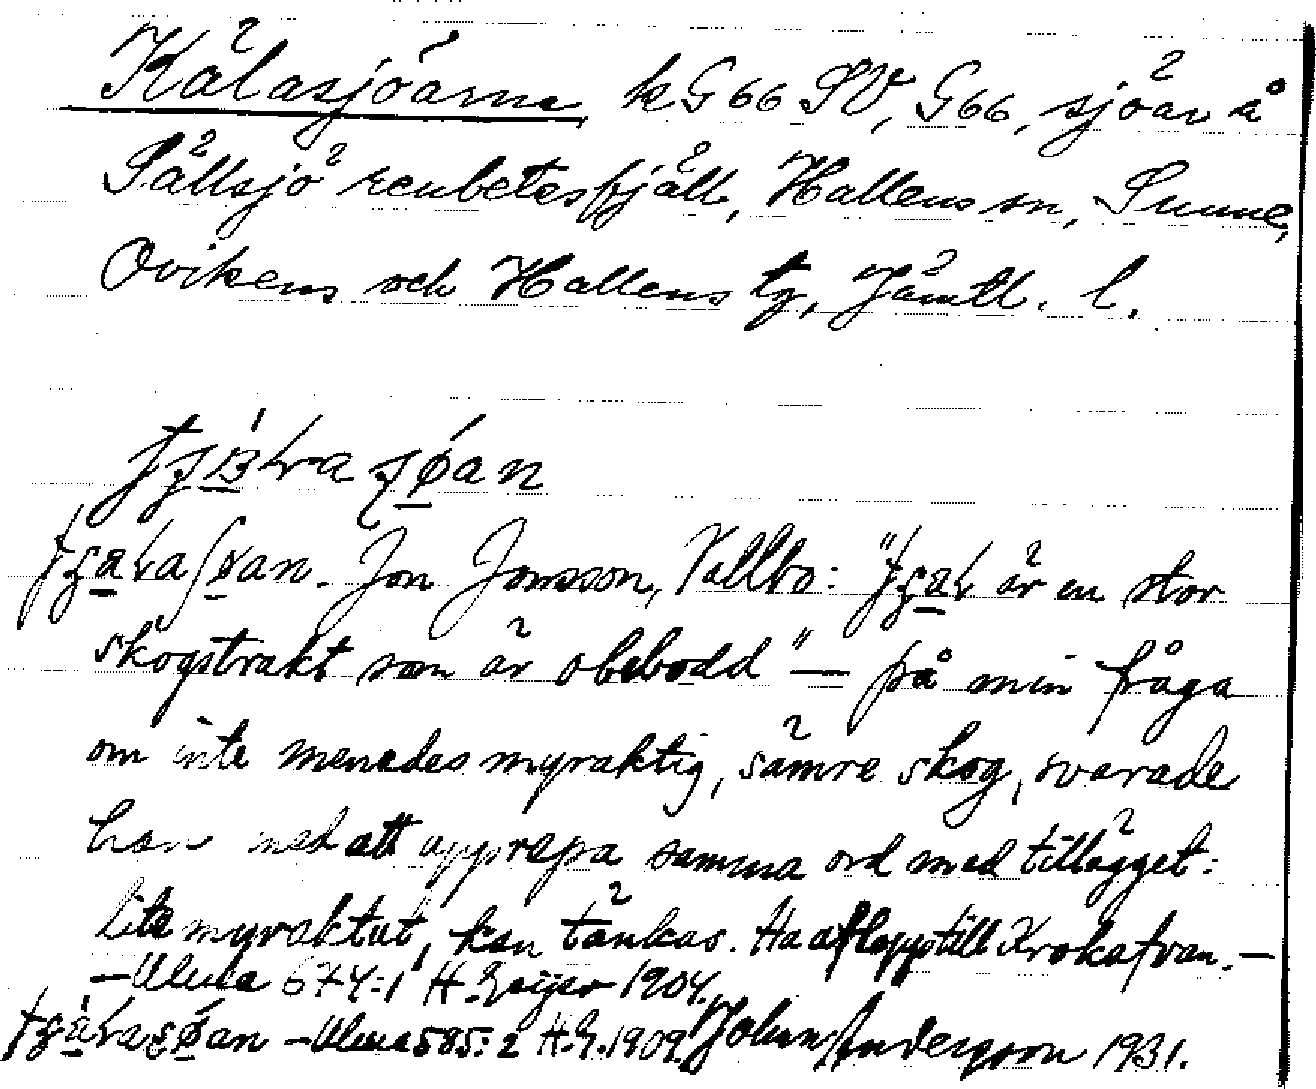 Kälasjöarne kG66 SV, G66, sjöar å
Sällsjö renbetesfjäll, Hallens sn, Sunne,
Ovikens och Hallens tg, Jämtl. l.
Jon Jonsson, Vallbo: " är en stor
skogstrakt som är obebodd" — på min fråga
om inte menades myraktig, sämre skog, svarade
han med att upprepa samma ord med tillägget:
lite myraktut, kan tänkas. Ha aflopp till Krokafvan. —
— Ulma 674:1 H. Geijer 1904.
— Ulma 585:2 H.G. 1909. Johan Andersson 1931.